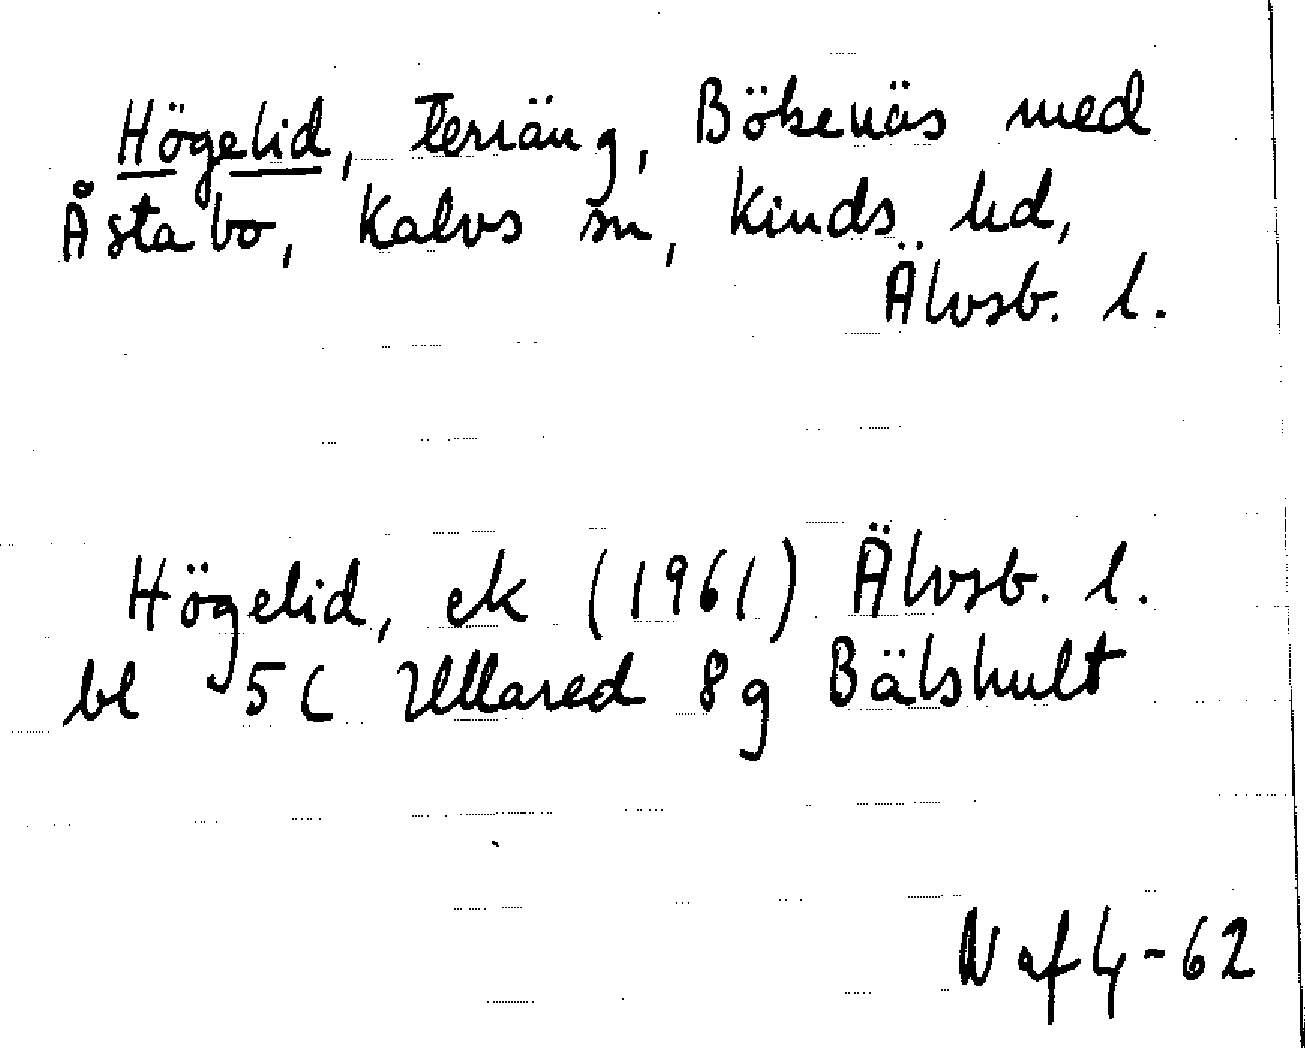 Högelid, Terräng, Bökenäs med
Åstabo, Kalvs sn, Kinds hd,
Älvsb. l.
Högelid, ek (1961) Älvsb. l.
bl 5C Ullared 8g Bälshult
N af Lj-62